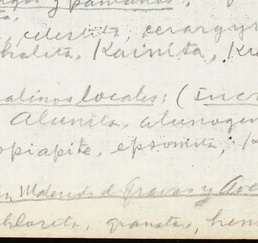 y pantanos:
, celestita, cerargyr
halita, Kainita, Ku
alinos locales: (Incr
Alunita, alunogen
opiapite, epsomita,
Maderas d Gravas y
clorita, granates, hem